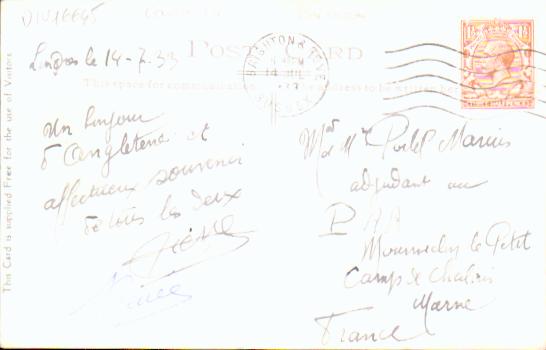 DIV16645
Londres le 14-7-33
POST CARD
This space for communication
address to be written here
BRIGHTON & HOVE
14 JUL
SUSSEX
THREE HALFPENCE
This Card is supplied Free for the use of Visitors
Un bonjour
d'Angleterre et
affectueux souvenir
de tous les deux
Pierre
Mr et Mme Postel Marius
adjudant au
Mourmelon le Petit
Camp de Chalons
Marne
France